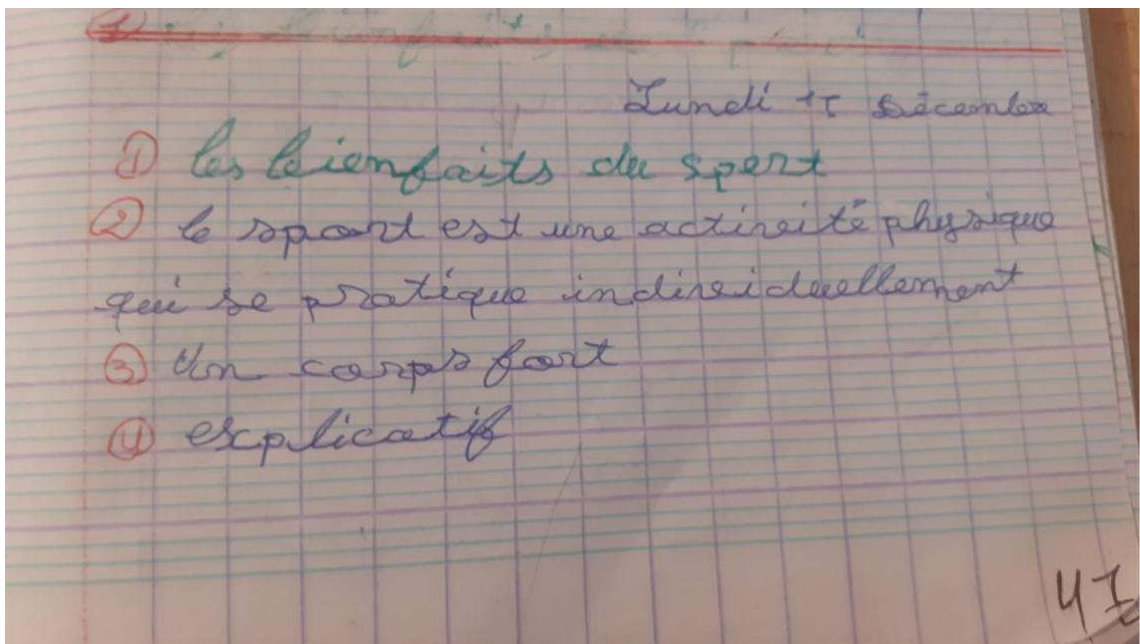 Lundi 15 Décembre
① les bienfaits du sport
② le sport est une activité physique
qui se pratique individuellement
③ Un corps fort
④ explicatif
47